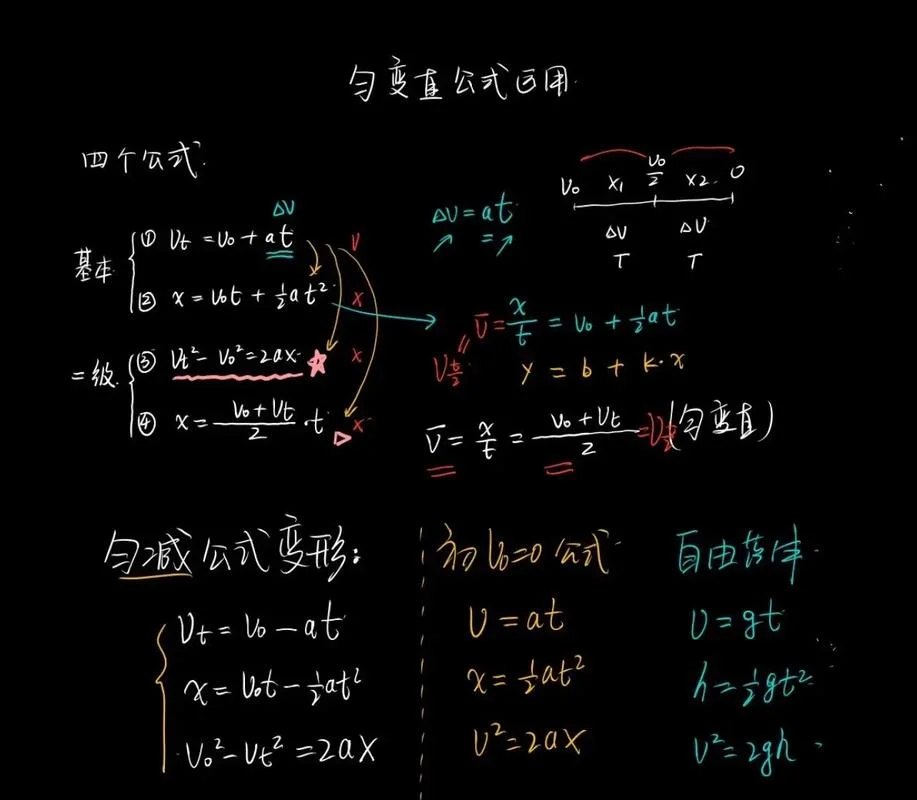 匀变直公式运用.
四个公式.
基本
ΔV
① Vt = V0 + at
② x = V0t + ½at²
二级.
③ Vt² - V0² = 2ax
④ x = (V0 + Vt)/2 · t
V
x
x
x
ΔV = at
V0 x1 V0/2 x2 0
ΔV ΔV
T T
V̄ = x/t = V0 + ½at
V t/2
y = b + k·x
V̄ = x/t = (V0 + Vt)/2 = V t/2 (匀变直)
匀减公式变形:
Vt = V0 - at
x = V0t - ½at²
V0² - Vt² = 2ax
初V0=0公式
V = at
x = ½at²
V² = 2ax
自由落体
V = gt
h = ½gt²
V² = 2gh